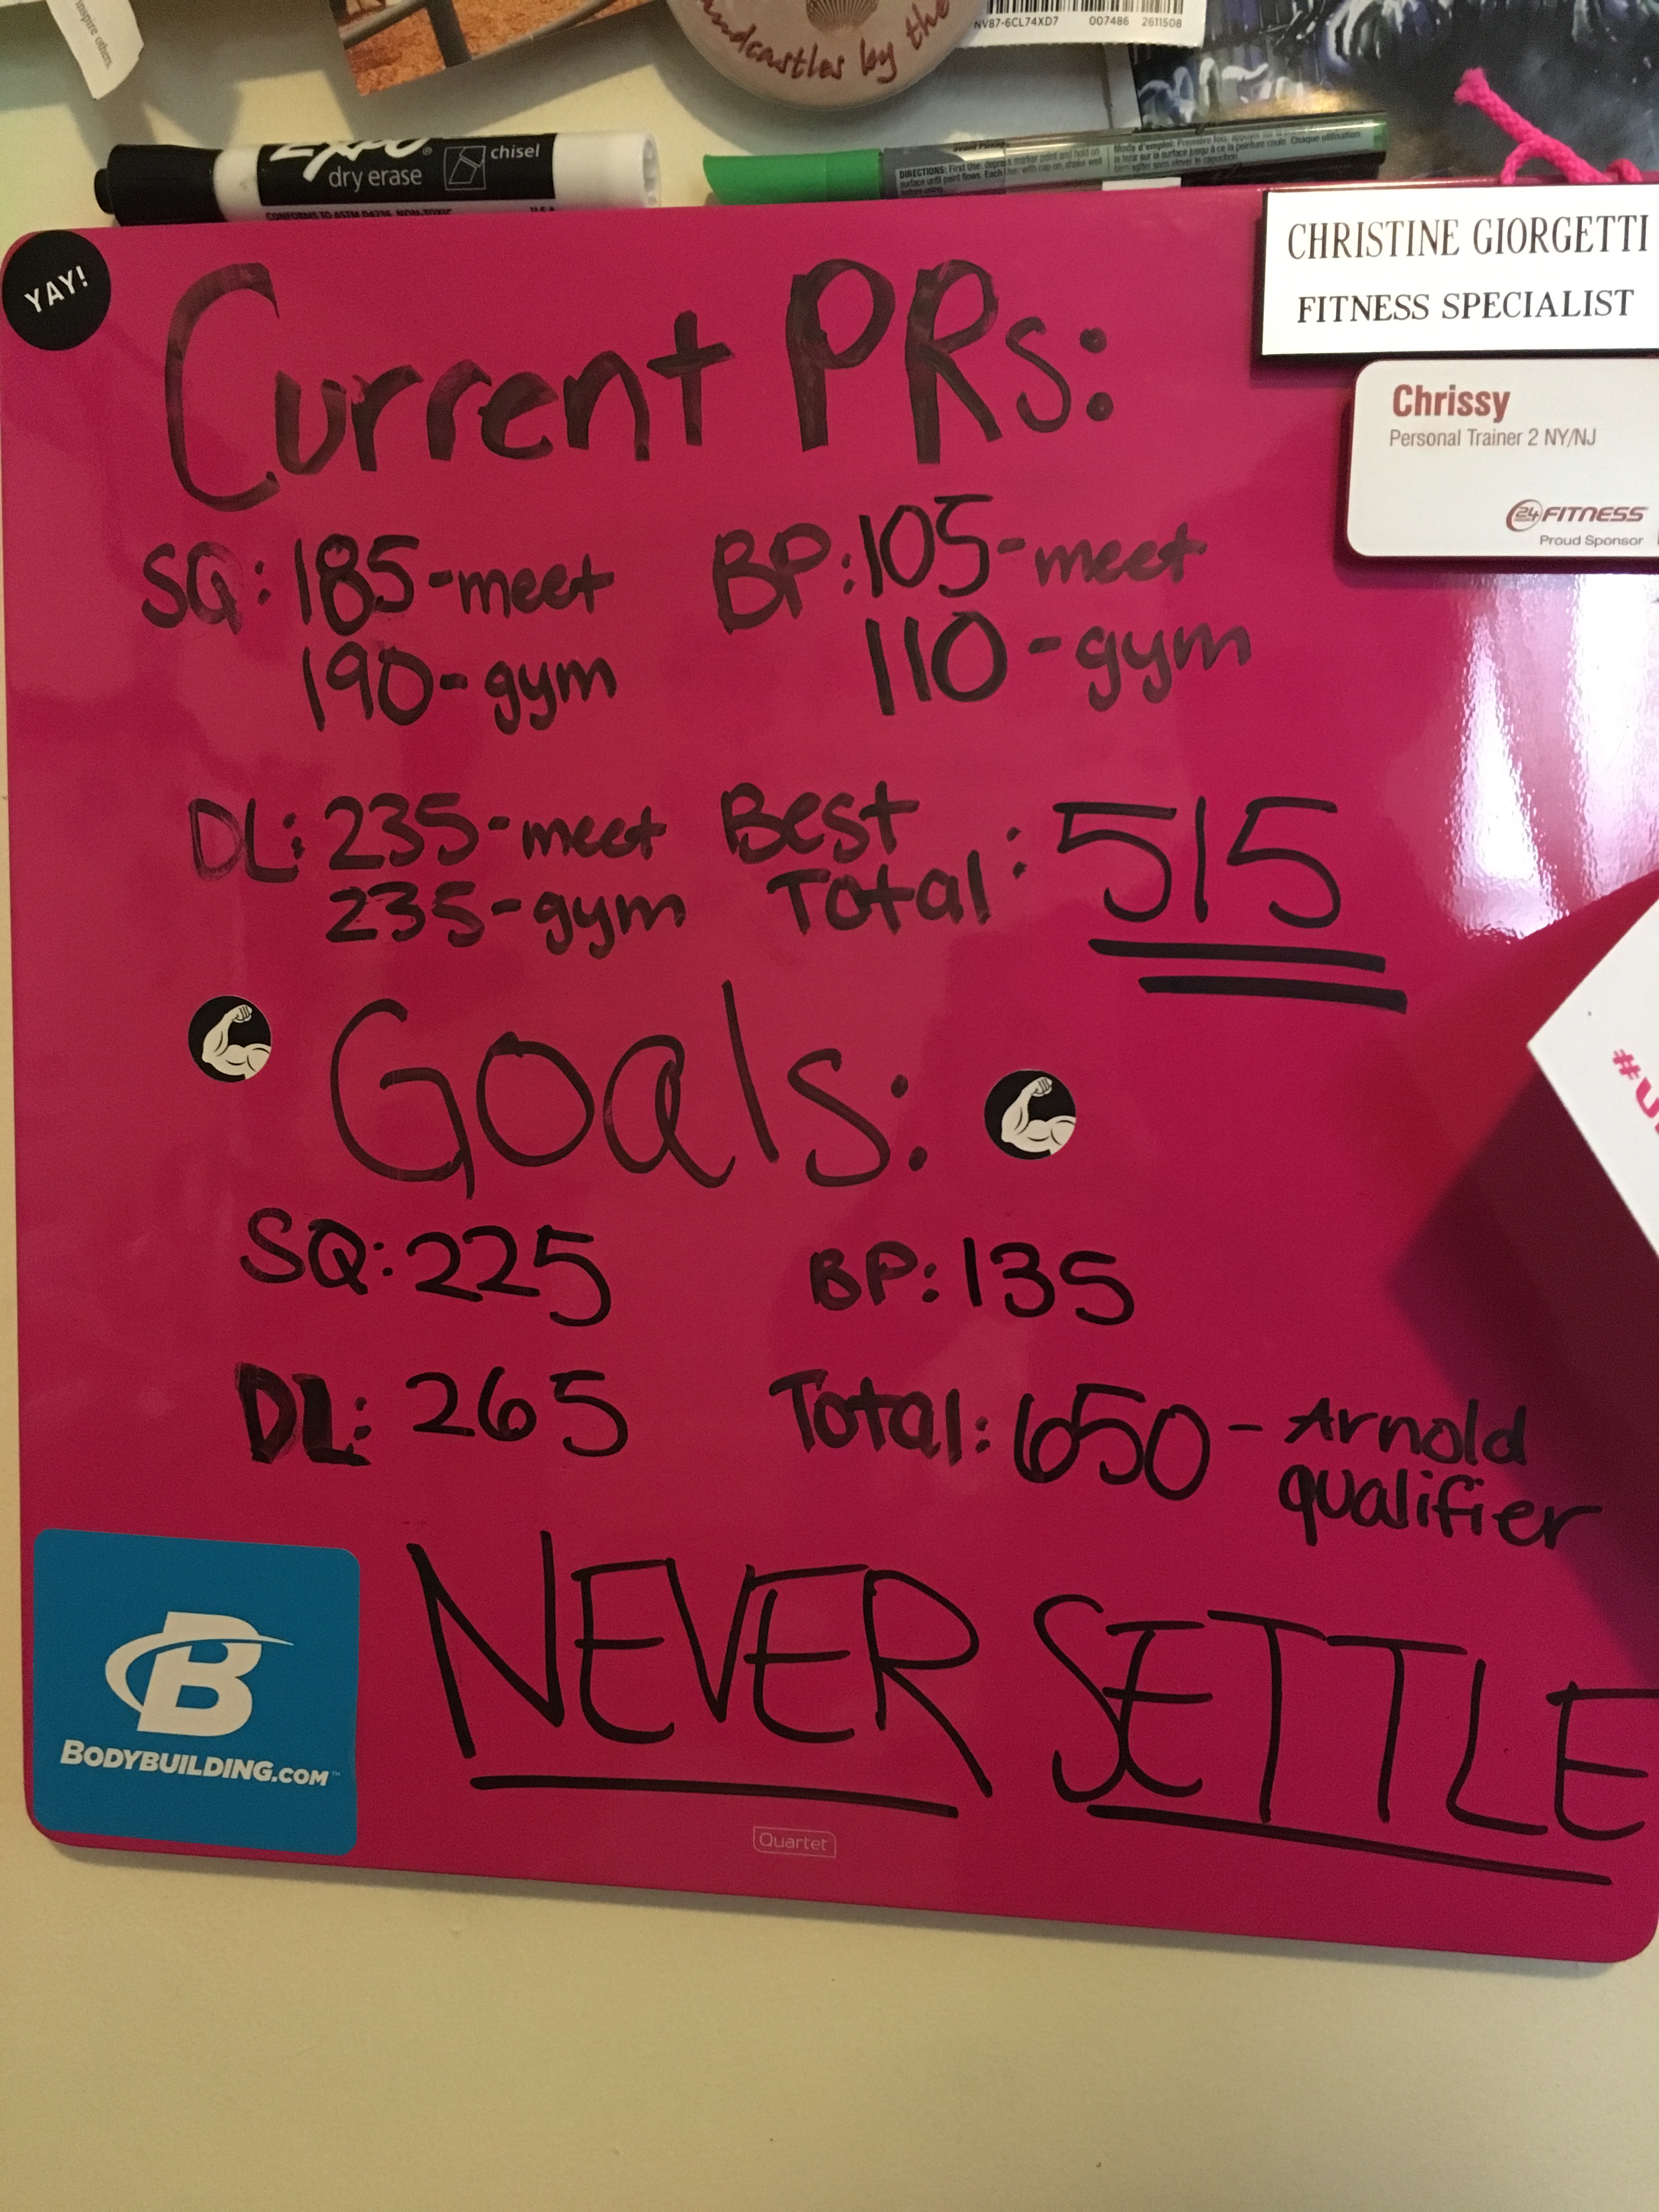 inspire others.
ndcastles by the
NV87-6CL74XD7 007486 2611508
EXPO® chisel
dry erase
CONFORMS TO ASTM D4236 NON-TOXIC U.S.A
YAY!
CHRISTINE GIORGETTI
FITNESS SPECIALIST
Chrissy
Personal Trainer 2 NY/NJ
24 FITNESS
Proud Sponsor
Current PRs:
SQ: 185-meet BP: 105-meet
190-gym 110-gym
DL: 235-meet Best
235-gym Total: 515
Goals:
SQ: 225 BP: 135
DL: 265 Total: 650 - Arnold
qualifier
NEVER SETTLE
B
BODYBUILDING.COM™
Quartet